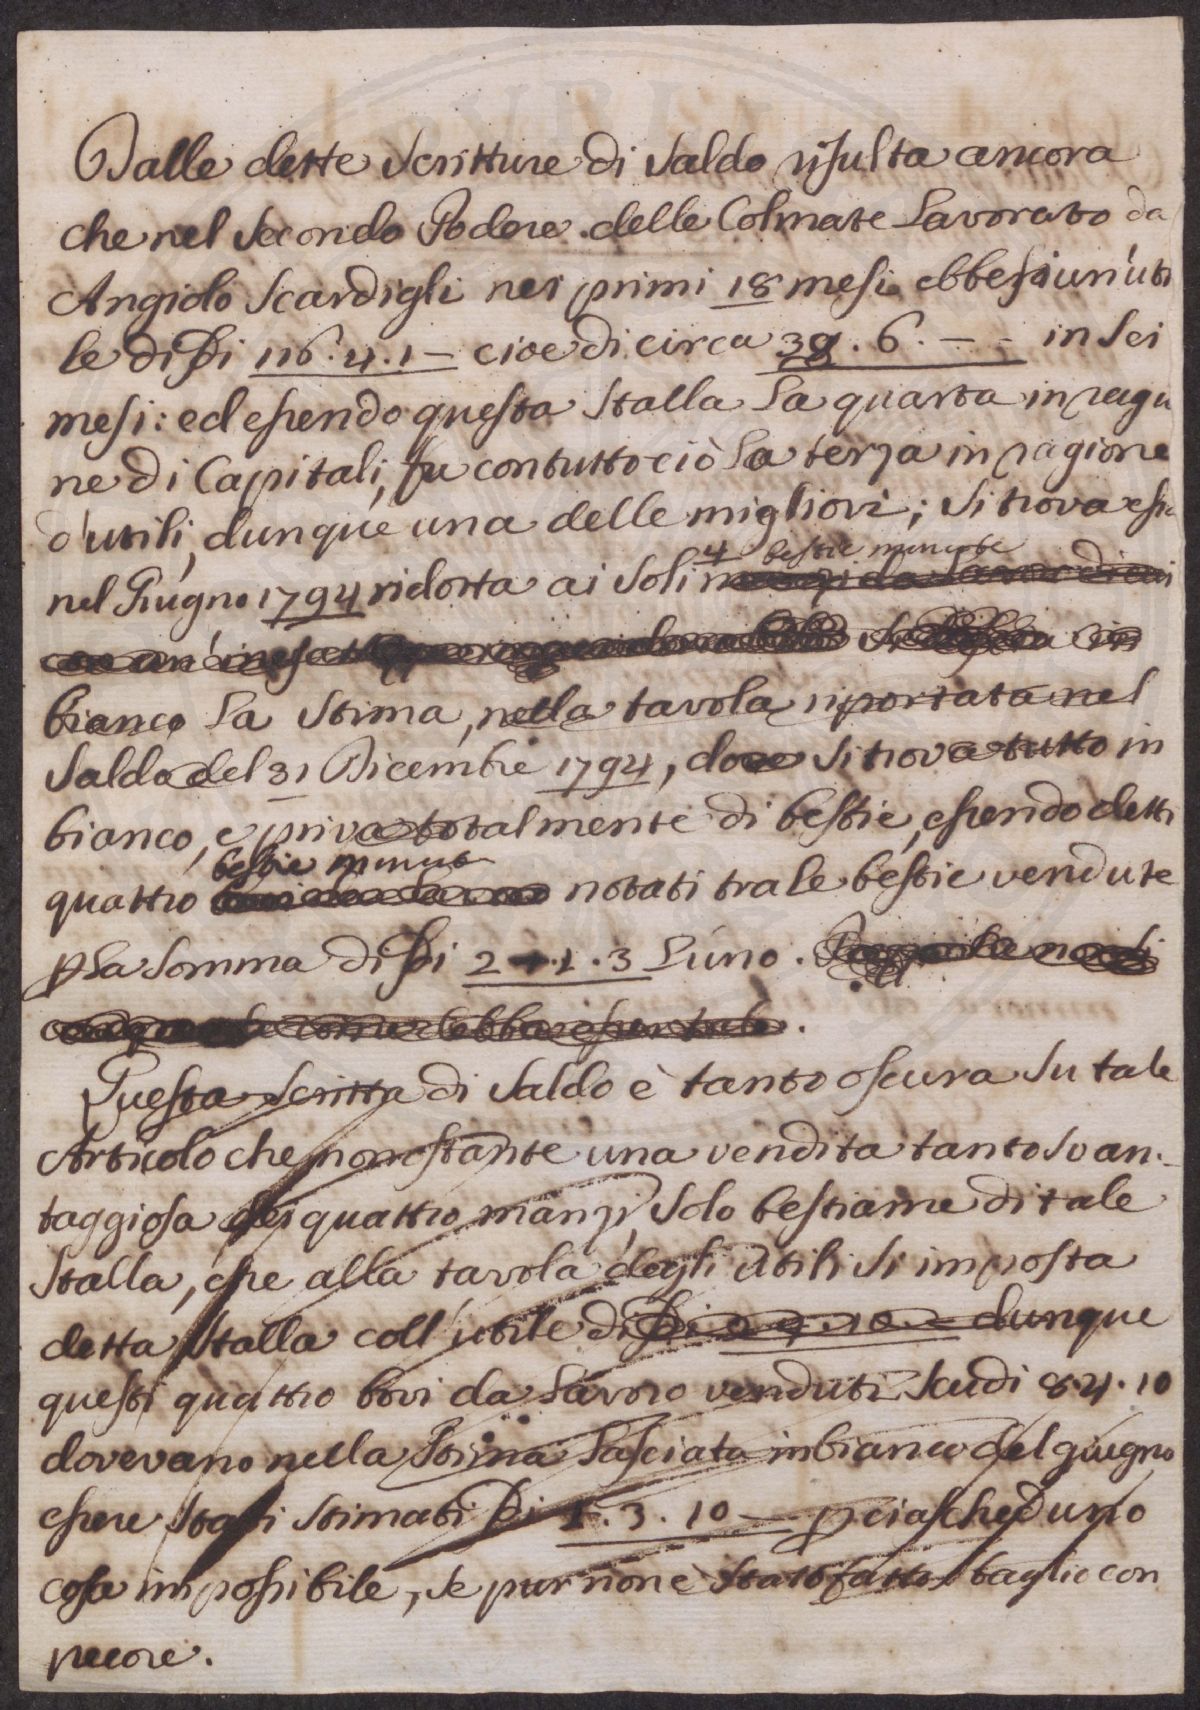 Dalle dette Scritture di Saldo risulta ancora
che nel Secondo Podere delle Colmate Lavorato da
Angiolo Scardigli nei primi 18 mesi ebbesi un'uti
le di Sdi 116.4.1 – cioè di circa 39.6.– – in Sei
mesi: ed essendo questa Stalla La quarta in ragio
ne di Capitali, fu contuttociò La terza in ragione
d'utili, dunque una delle migliori; Si trova essa
4 bestie minute
nel Giugno 1794 ridotta ai Soli manzi da Lavoro di cui
con un' Si in
bianco La Stima, nella tavola riportata nel
Saldo del 31 Dicembre 1794, dove Si trova tutto in
bianco, e priva totalmente di bestie, essendo detti
bestie minute
quattro notati tra le bestie vendute
p La Somma di Sdi 2.1.3 L'uno.
come debba esser tale.
Questa Scritta di Saldo è tanto oscura Su tale
Articolo che nonostante una vendita tanto Svan-
taggiosa dei quattro manzi, Solo bestiame di tale
Stalla, che alla tavola degli Utili Si imposta
detta Stalla coll'utile di Sdi dunque
questi quattro bovi da Lavoro venduti Scudi 8.4.10
dovevano nella Stima Lasciata in bianco del giugno
essere Stati Stimati Sdi 1.3.10 – p ciascheduno
cosa impossibile, Se pur non è Stato fatto Sbaglio con
pecore.